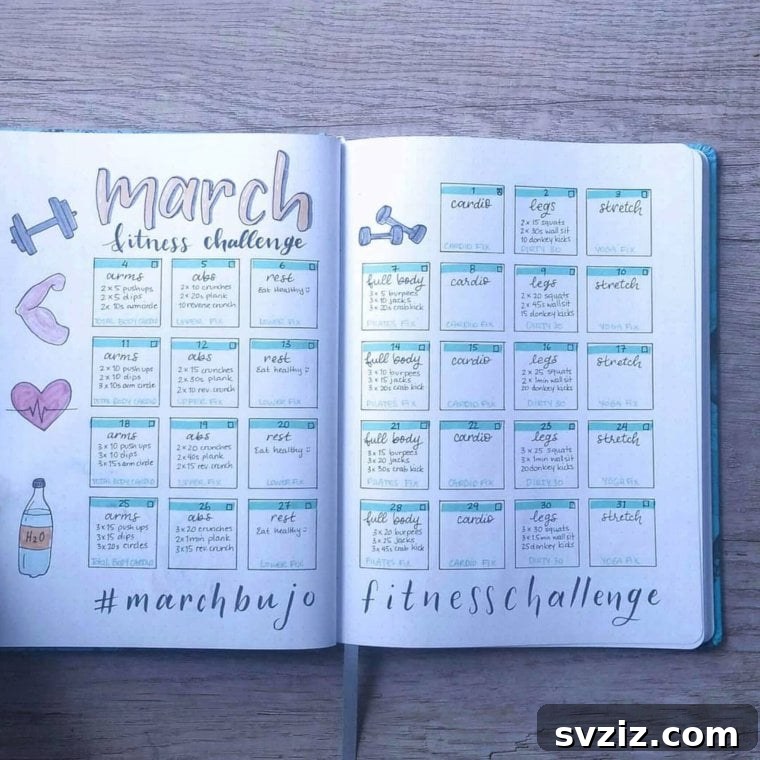 march
fitness challenge
1
cardio
CARDIO FIX
2
legs
2 x 15 squats
2 x 30s wall sit
10 donkey kicks
DIRTY 30
3
stretch
YOGA FIX
4
arms
2 x 5 pushups
2 x 5 dips
2 x 10s armcircle
TOTAL BODY CARDIO
5
abs
2 x 10 crunches
2 x 20s plank
10 reverse crunch
UPPER FIX
6
rest
Eat healthy
LOWER FIX
7
full body
3 x 5 burpees
3 x 10 jacks
3 x 20s crab kick
PILATES FIX
8
cardio
CARDIO FIX
9
legs
2 x 20 squats
2 x 45s wall sit
15 donkey kicks
DIRTY 30
10
stretch
YOGA FIX
11
arms
2 x 10 push ups
2 x 10 dips
3 x 10s arm circle
TOTAL BODY CARDIO
12
abs
2 x 15 crunches
2 x 30s plank
2 x 10 rev crunch
UPPER FIX
13
rest
Eat healthy
LOWER FIX
14
full body
3 x 10 burpees
3 x 15 jacks
3 x 20s crab kick
PILATES FIX
15
cardio
CARDIO FIX
16
legs
2 x 25 squats
2 x 1min wall sit
20 donkey kicks
DIRTY 30
17
stretch
YOGA FIX
18
arms
3 x 10 push ups
3 x 10 dips
3 x 15s arm circle
TOTAL BODY CARDIO
19
abs
2 x 20 crunches
2 x 40s plank
2 x 15 rev crunch
UPPER FIX
20
rest
Eat healthy
LOWER FIX
21
full body
3 x 15 burpees
3 x 20 jacks
3 x 30s crab kick
PILATES FIX
22
cardio
CARDIO FIX
23
legs
3 x 25 squats
3 x 1min wall sit
20 donkey kicks
DIRTY 30
24
stretch
YOGA FIX
25
arms
3 x 15 push ups
3 x 15 dips
3 x 20s circles
TOTAL BODY CARDIO
26
abs
3 x 20 crunches
2 x 1min plank
3 x 15 rev crunch
UPPER FIX
27
rest
Eat healthy
LOWER FIX
28
full body
3 x 20 burpees
3 x 25 jacks
3 x 45s crab kick
PILATES FIX
29
cardio
CARDIO FIX
30
legs
3 x 30 squats
3 x 1.5min wall sit
25 donkey kicks
DIRTY 30
31
stretch
YOGA FIX
H2O
#marchbujo fitnesschallenge
svziz.com